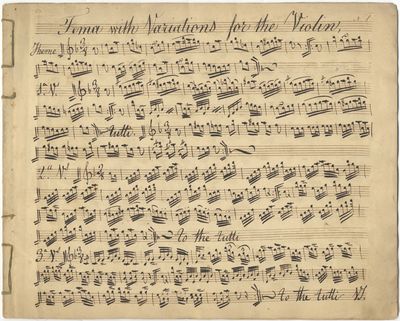 Tema with Variations for the Violin.
Theme
1st V.
tutti
2d V.
to the tutti
3d V.
to the tutti VS.